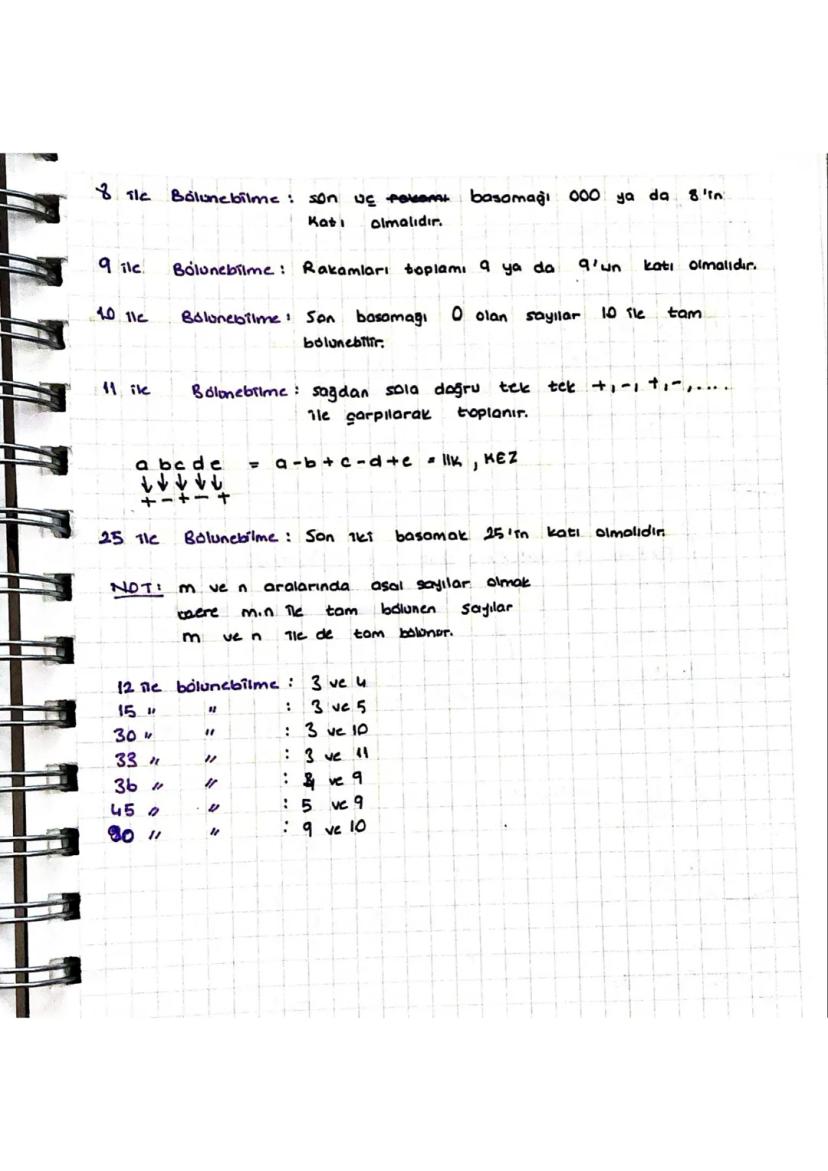 8 ile Bölünebilme : son üç basamağı 000 ya da 8'in
Katı olmalıdır.
9 ile Bölünebilme : Rakamları toplamı 9 ya da 9'un katı olmalıdır.
10 ile Bölünebilme : Son basamağı 0 olan sayılar 10 ile tam
bölünebilir.
11 ile Bölünebilme : sağdan sola doğru tek tek +,-,+,-,....
ile çarpılarak toplanır.
a b c d e = a-b+c-d+e = 11k , KEZ
↓ ↓ ↓ ↓ ↓
+ - + - +
25 ile Bölünebilme : Son iki basamak 25'in katı olmalıdır.
NOT: m ve n aralarında asal sayılar olmak
üzere m.n ile tam bölünen sayılar
m ve n ile de tam bölünür.
12 ile bölünebilme : 3 ve 4
15 " " : 3 ve 5
30 " " : 3 ve 10
33 " " : 3 ve 11
36 " " : 4 ve 9
45 " " : 5 ve 9
90 " " : 9 ve 10